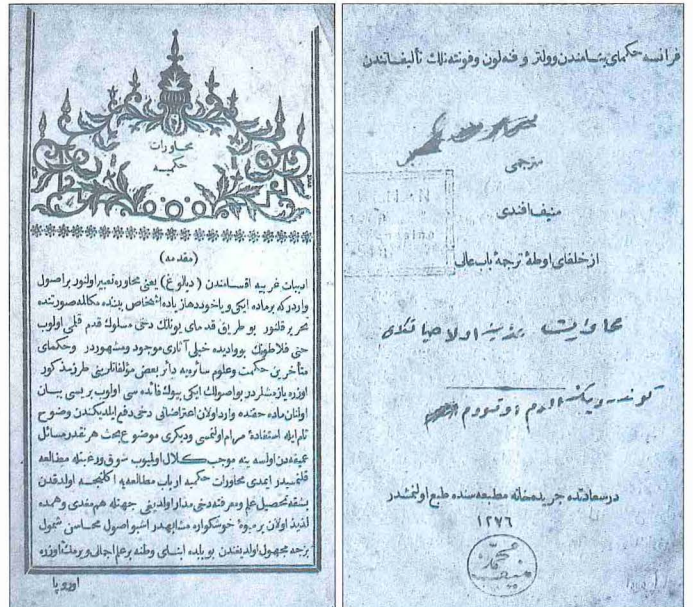 محاورات
حكميه
(مقدمه)
ادبيات غربيه اقسامندن (ديالوغ) يعنى محاوره تعبير اولنور بر اصول
واردركه بر ماده ايكى وياخود دها زياده اشخاص بيننده مكالمه صورتنده
تحرير قلنور بو طريق قدماى يونانك دخى مسلوك قدم قلمى اولوب
حتى فلاطونك بو واديده خيلى آثارى موجود ومشهوردر وحكماى
متأخرين حكمت وعلوم سائره يه دائر بعض مؤلفاتلرينى طرز مذكور
اوزره يازمشلردر بو اصولك ايكى بيوك فائده سى اولوب بريسى بيان
اولنان ماده حقنده وارد اولان اعتراضاتى دخى دفع ايلديكندن وضوح
تام ايله استفادۀ مرام اولنمسى وديكرى موضوع بحث هر نقدر مسائل
عميقه دن اولسه ينه موجب كلال اولميوب شوق ورغبتله مطالعه
قلنمسيدر ايمدى محاورات حكميه ارباب مطالعه يه اكلنجه اولدقدن
بشقه تحصيل علم ومعرفته دخى مدار اولديغى جهتله هم مفيد وهمده
لذيذ اولان بر ميوۀ خوشكواره مشابهدر اشبو اصول محاسن شمول
بزجه مجهول اولديغندن بو بابده ابناى وطنه بر علم اجمالى ويرمك اوزره
اوروپا
فرانسه حكماى بنامندن وولتر وفنه لون وفونتنه لك تأليفاتندن
مترجمى
منيف افندى
از خلفاى اوطۀ ترجمۀ باب عالى
درسعادتده جريده خانه مطبعه سنده طبع اولنمشدر
١٢٧٦
محمد
منيف